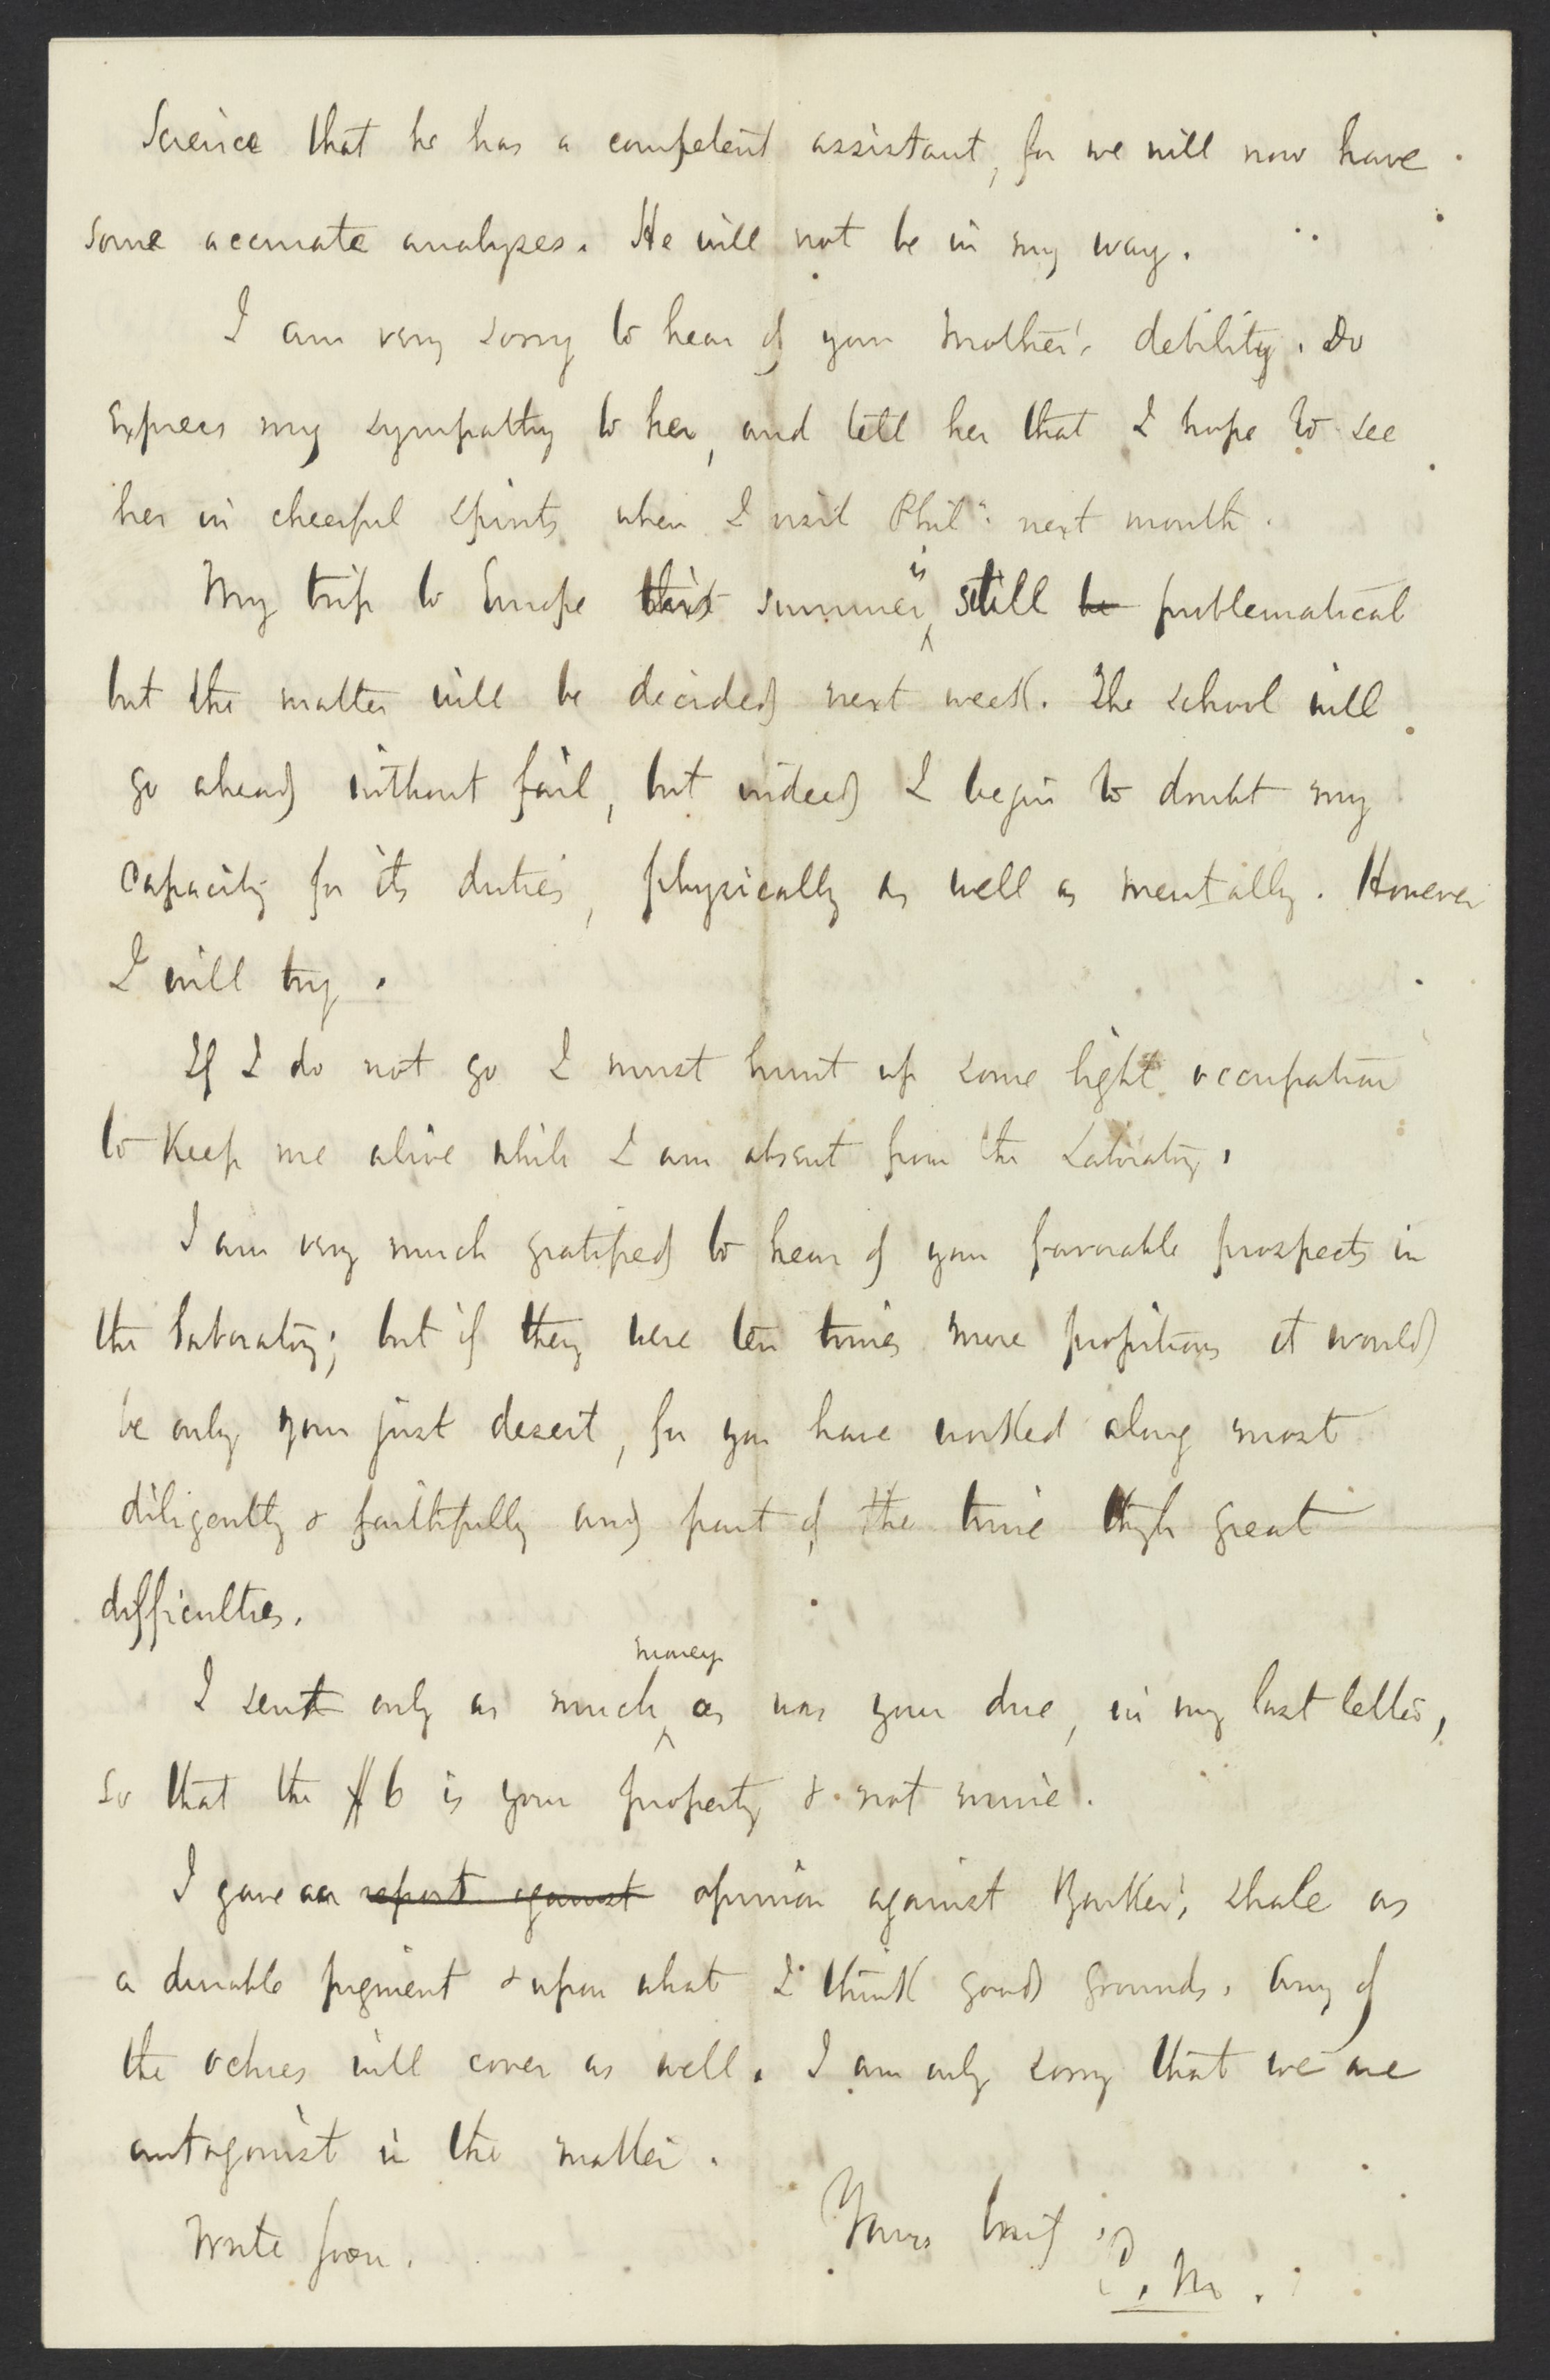 Science that he has a competent assistant, for we will now have
some accurate analyses. He will not be in my way.
I am very sorry to hear of your mother's debility. Do
express my sympathy to her, and tell her that I hope to see
her in cheerful spirits when I visit Phila. next month.
My trip to Europe this summer is still be problematical
but the matter will be decided next week. The school will
go ahead without fail, but indeed I begin to doubt my
capacity for its duties, physically as well as mentally. However
I will try.
If I do not go I must hunt up some light occupation
to keep me alive while I am absent from the Laboratory.
I am very much gratified to hear of your favorable prospects in
the laboratory; but if they were ten times more propitious it would
be only your just desert, for you have worked along most
diligently & faithfully and part of the time thrgh great
difficulties.
I sent only as much money as was your due, in my last letter,
so that the $6 is your property & not mine.
I gave an report against opinion against Barker's shale as
a durable pigment & upon what I think good grounds. Any of
the ochres will cover as well. I am only sorry that we are
antagonist in the matter.
Write soon.
Yours truly
M.